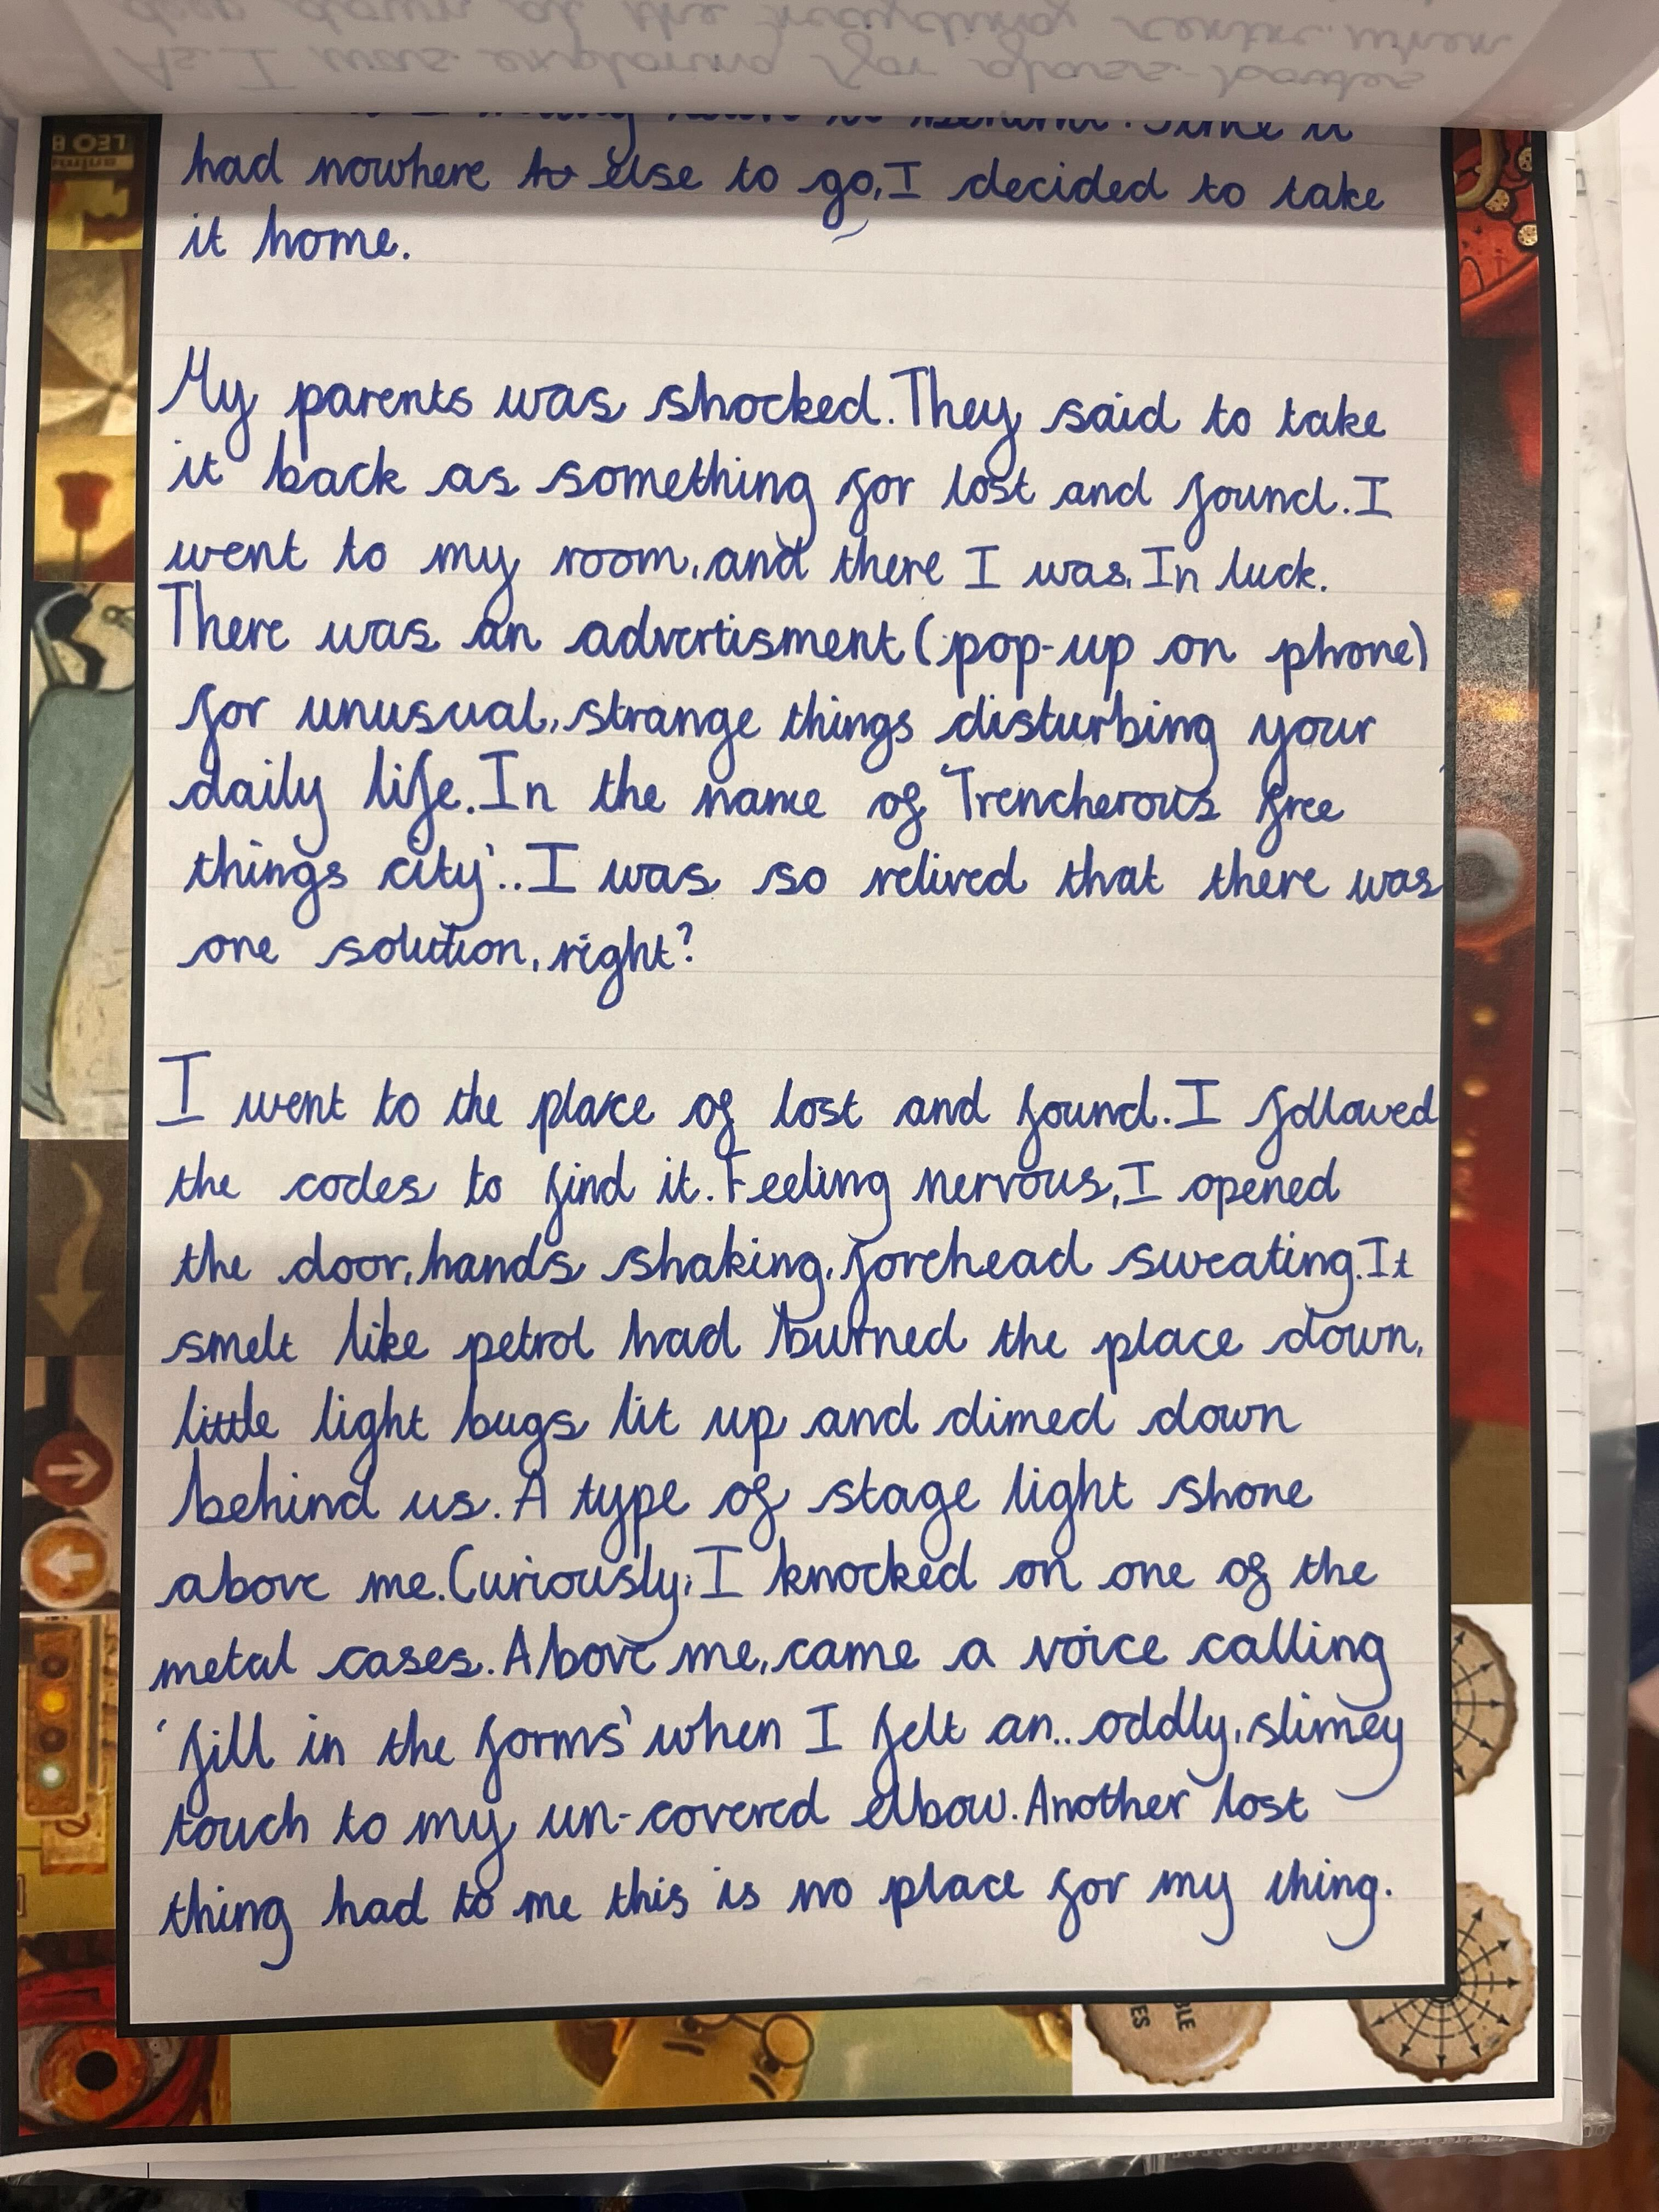 As I was exploring for glass-bottles
deep down at the recycling centre when
it behind. Since it
had nowhere to else to go, I decided to take
it home.
My parents was shocked. They said to take
it back as something for lost and found. I
went to my room, and there I was, In luck.
There was an advertisment (pop-up on phone)
for unusual, strange things disturbing your
daily life. In the name of 'Trencherous free
things city'.. I was so relived that there was
one solution, right?
I went to the place of lost and found. I followed
the codes to find it. Feeling nervous, I opened
the door, hands shaking, forehead sweating. It
smelt like petrol had burned the place down,
little light bugs lit up and dimed down
behind us. A type of stage light shone
above me. Curiously, I knocked on one of the
metal cases. Above me, came a voice calling
'fill in the forms' when I felt an.. oddly, slimey
touch to my un-covered elbow. Another lost
thing had to me this is no place for my thing.
LEO B